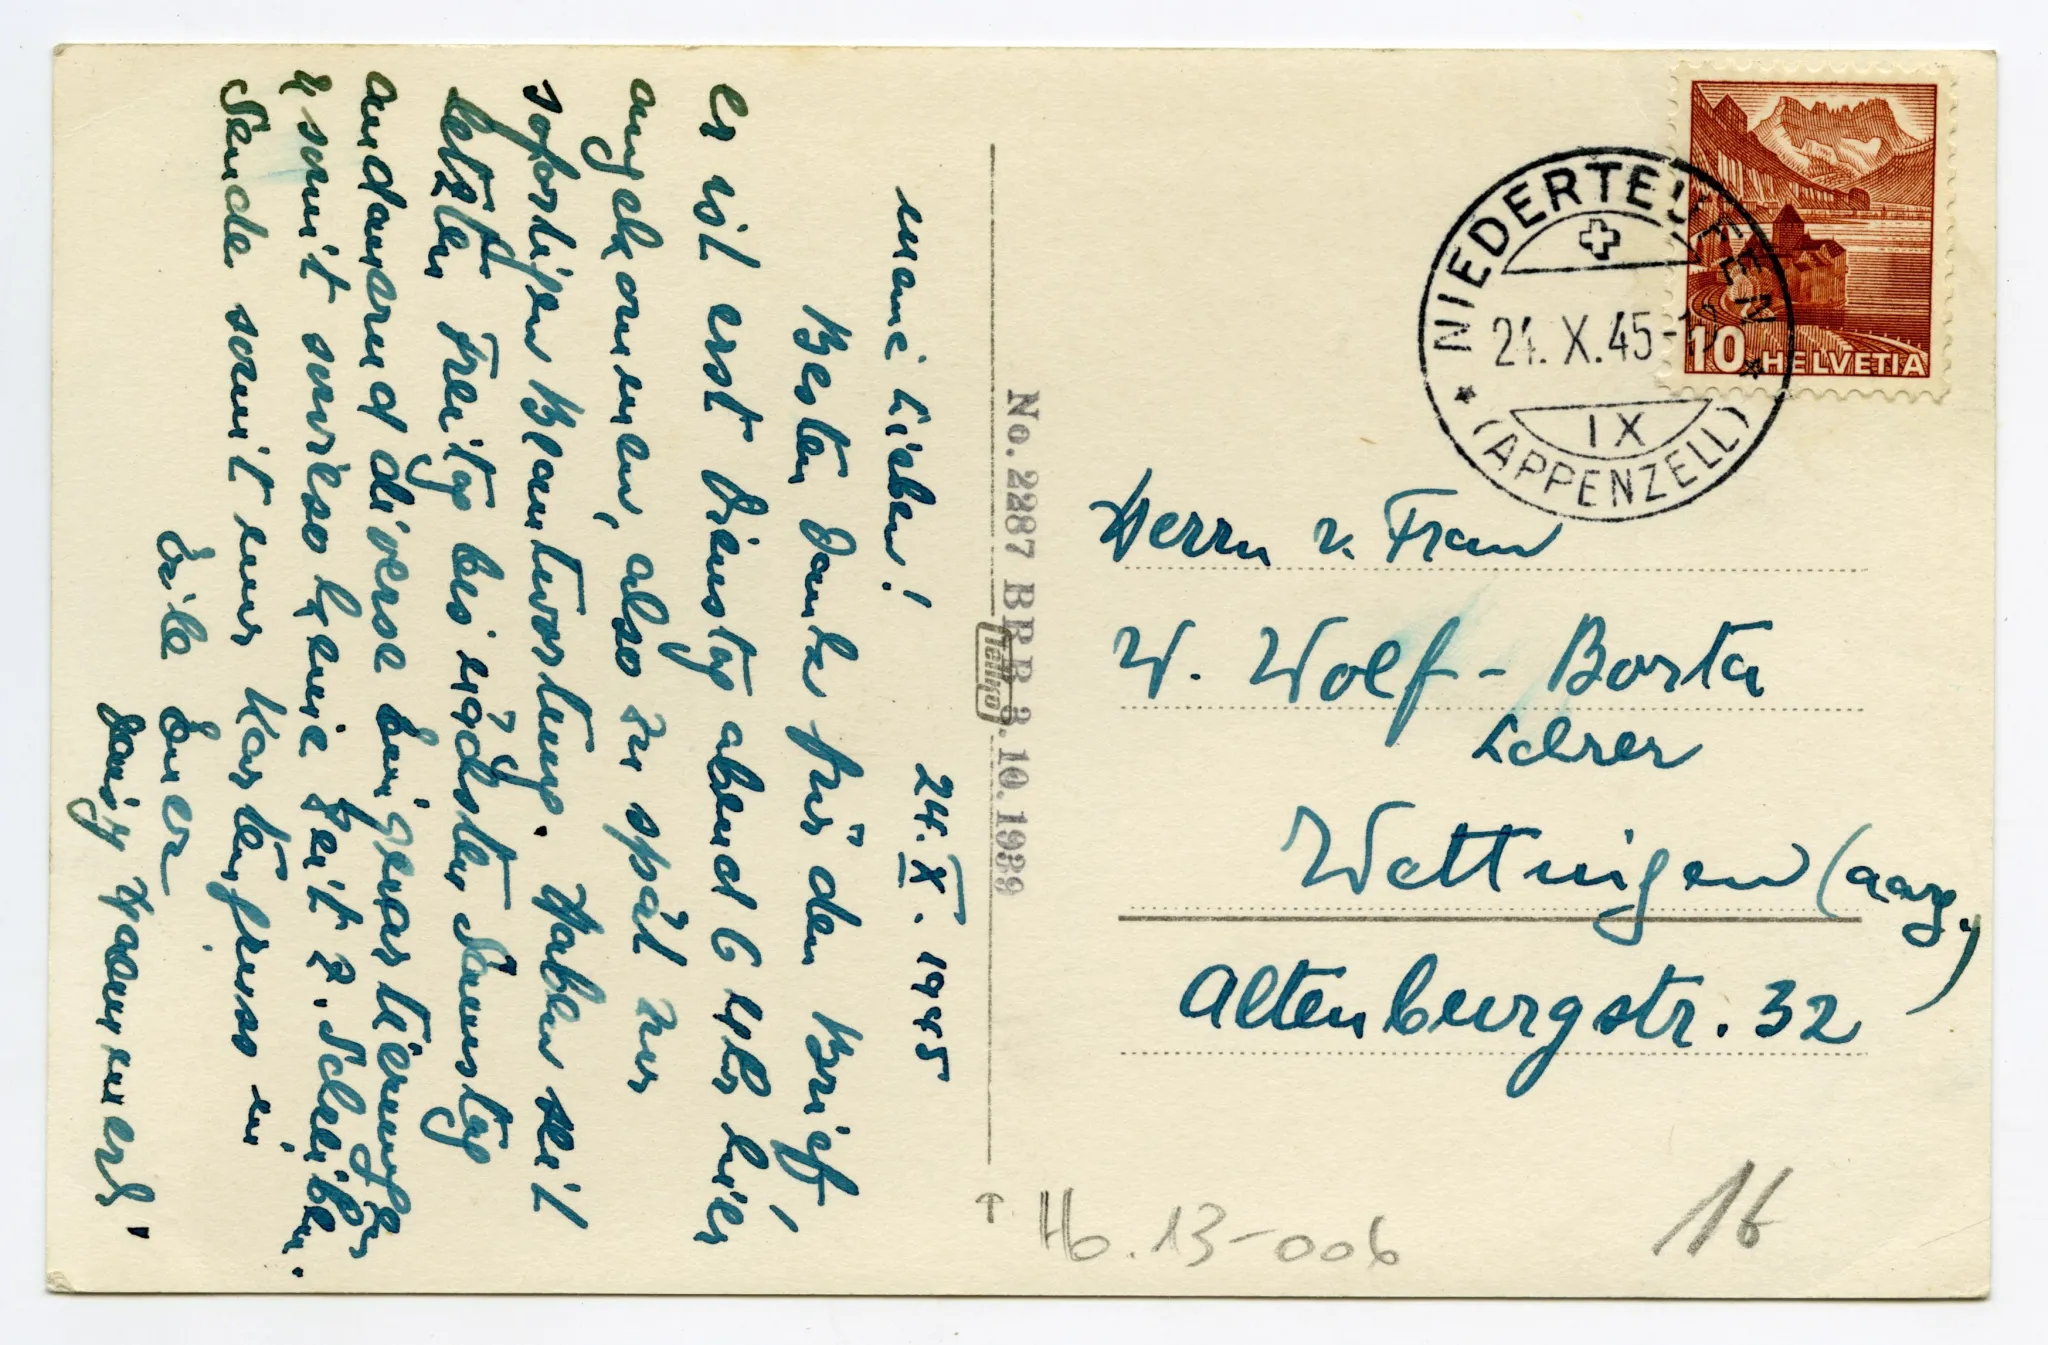 24. X. 1945
Meine Lieben!
Besten Dank für den Brief,
er ist erst Dienstag abend 6 Uhr hier
angekommen, also zu spät zur
sofortigen Beantwortung. Haben seit
letzten Freitag bis nächsten Samstag
andauernd diverse Einquartierungen
& somit sowieso keine Zeit z. Schreiben.
Sende somit nur Kartengruss in
Eile Euer
No. 2287 BRB 3.10.1939
Tellko
NIEDERTEUFEN
24. X. 45-
IX
(APPENZELL)
10 HELVETIA
Herrn u. Frau
W. Wolf - Borta
Lehrer
Wettingen (Aarg.)
Altenburgstr. 32
Hb. 13-006
16